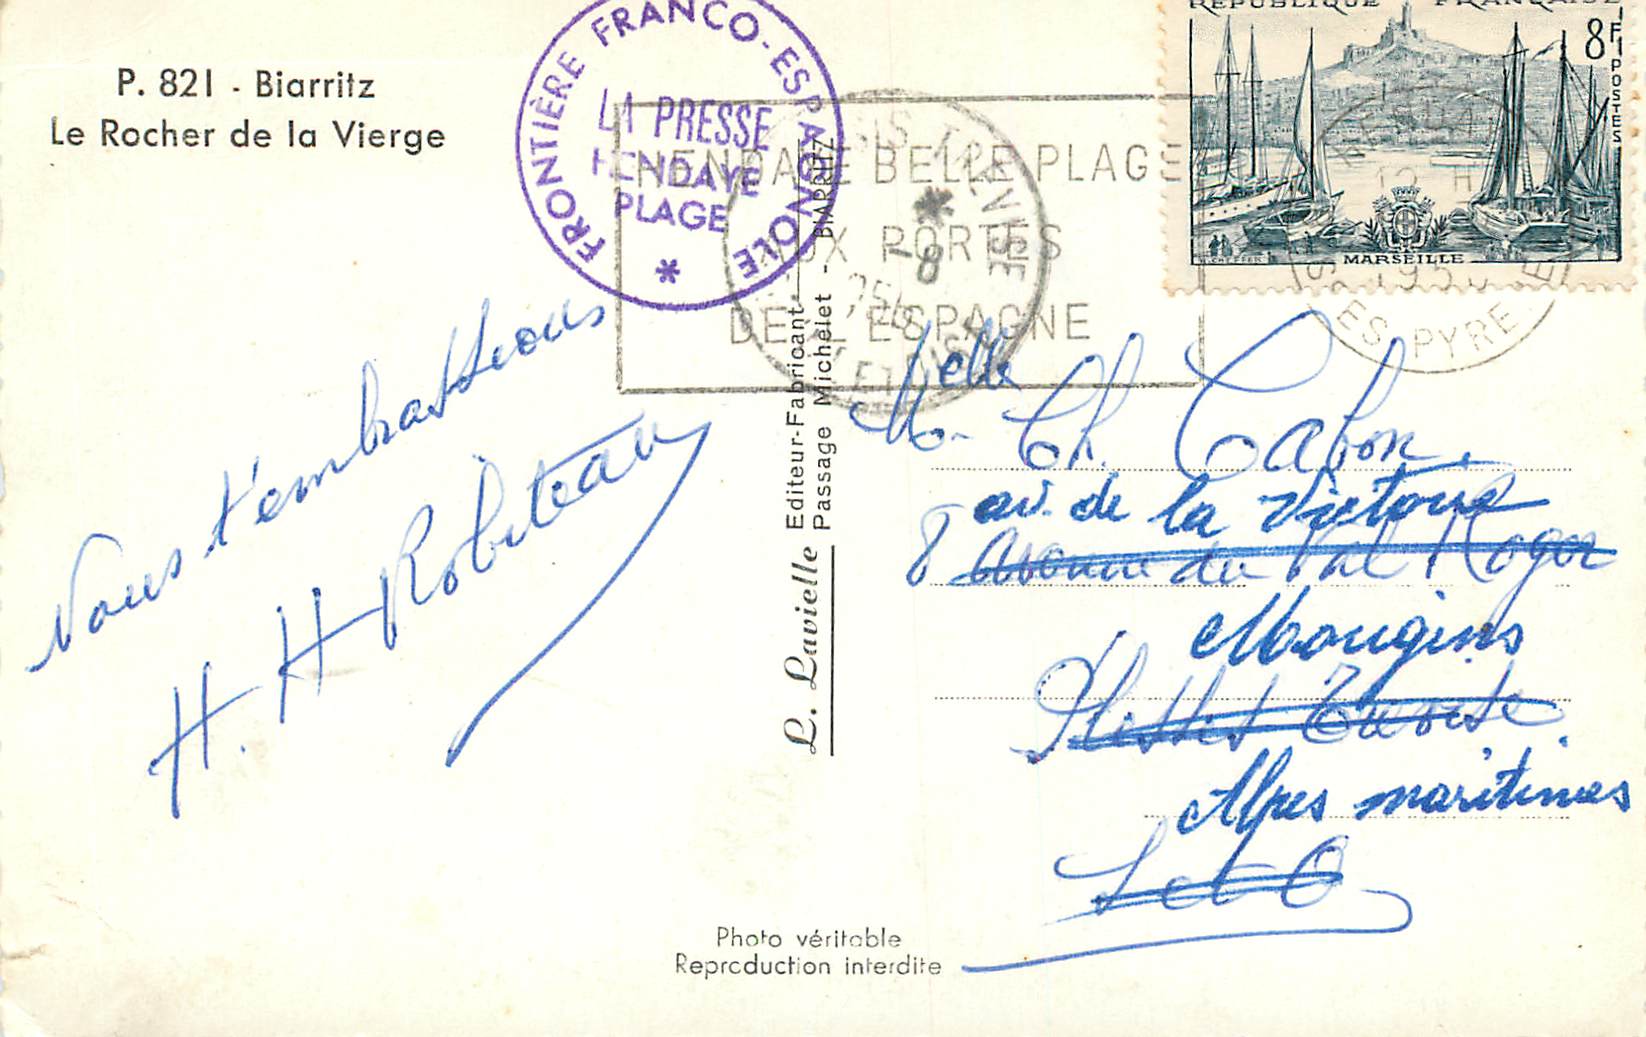 P. 821 - Biarritz
Le Rocher de la Vierge
FRONTIÈRE FRANCO-ESPAGNOLE
LA PRESSE
HENDAYE
PLAGE
*
HENDAYE BELLE PLAGE
AUX PORTES
DE L'ESPAGNE
RÉPUBLIQUE FRANÇAISE
8F
POSTES
MARSEILLE
Nous t'embrassons
H. H Robiteau
L. Lavielle Editeur-Fabricant
Passage Michelet - BIARRITZ
Melle Ch. Cabon.
av. de la Victoire
8 Avenue du Val Roger
Mougins
Plessis
Alpes maritimes
S et O
Photo véritable
Reproduction interdite